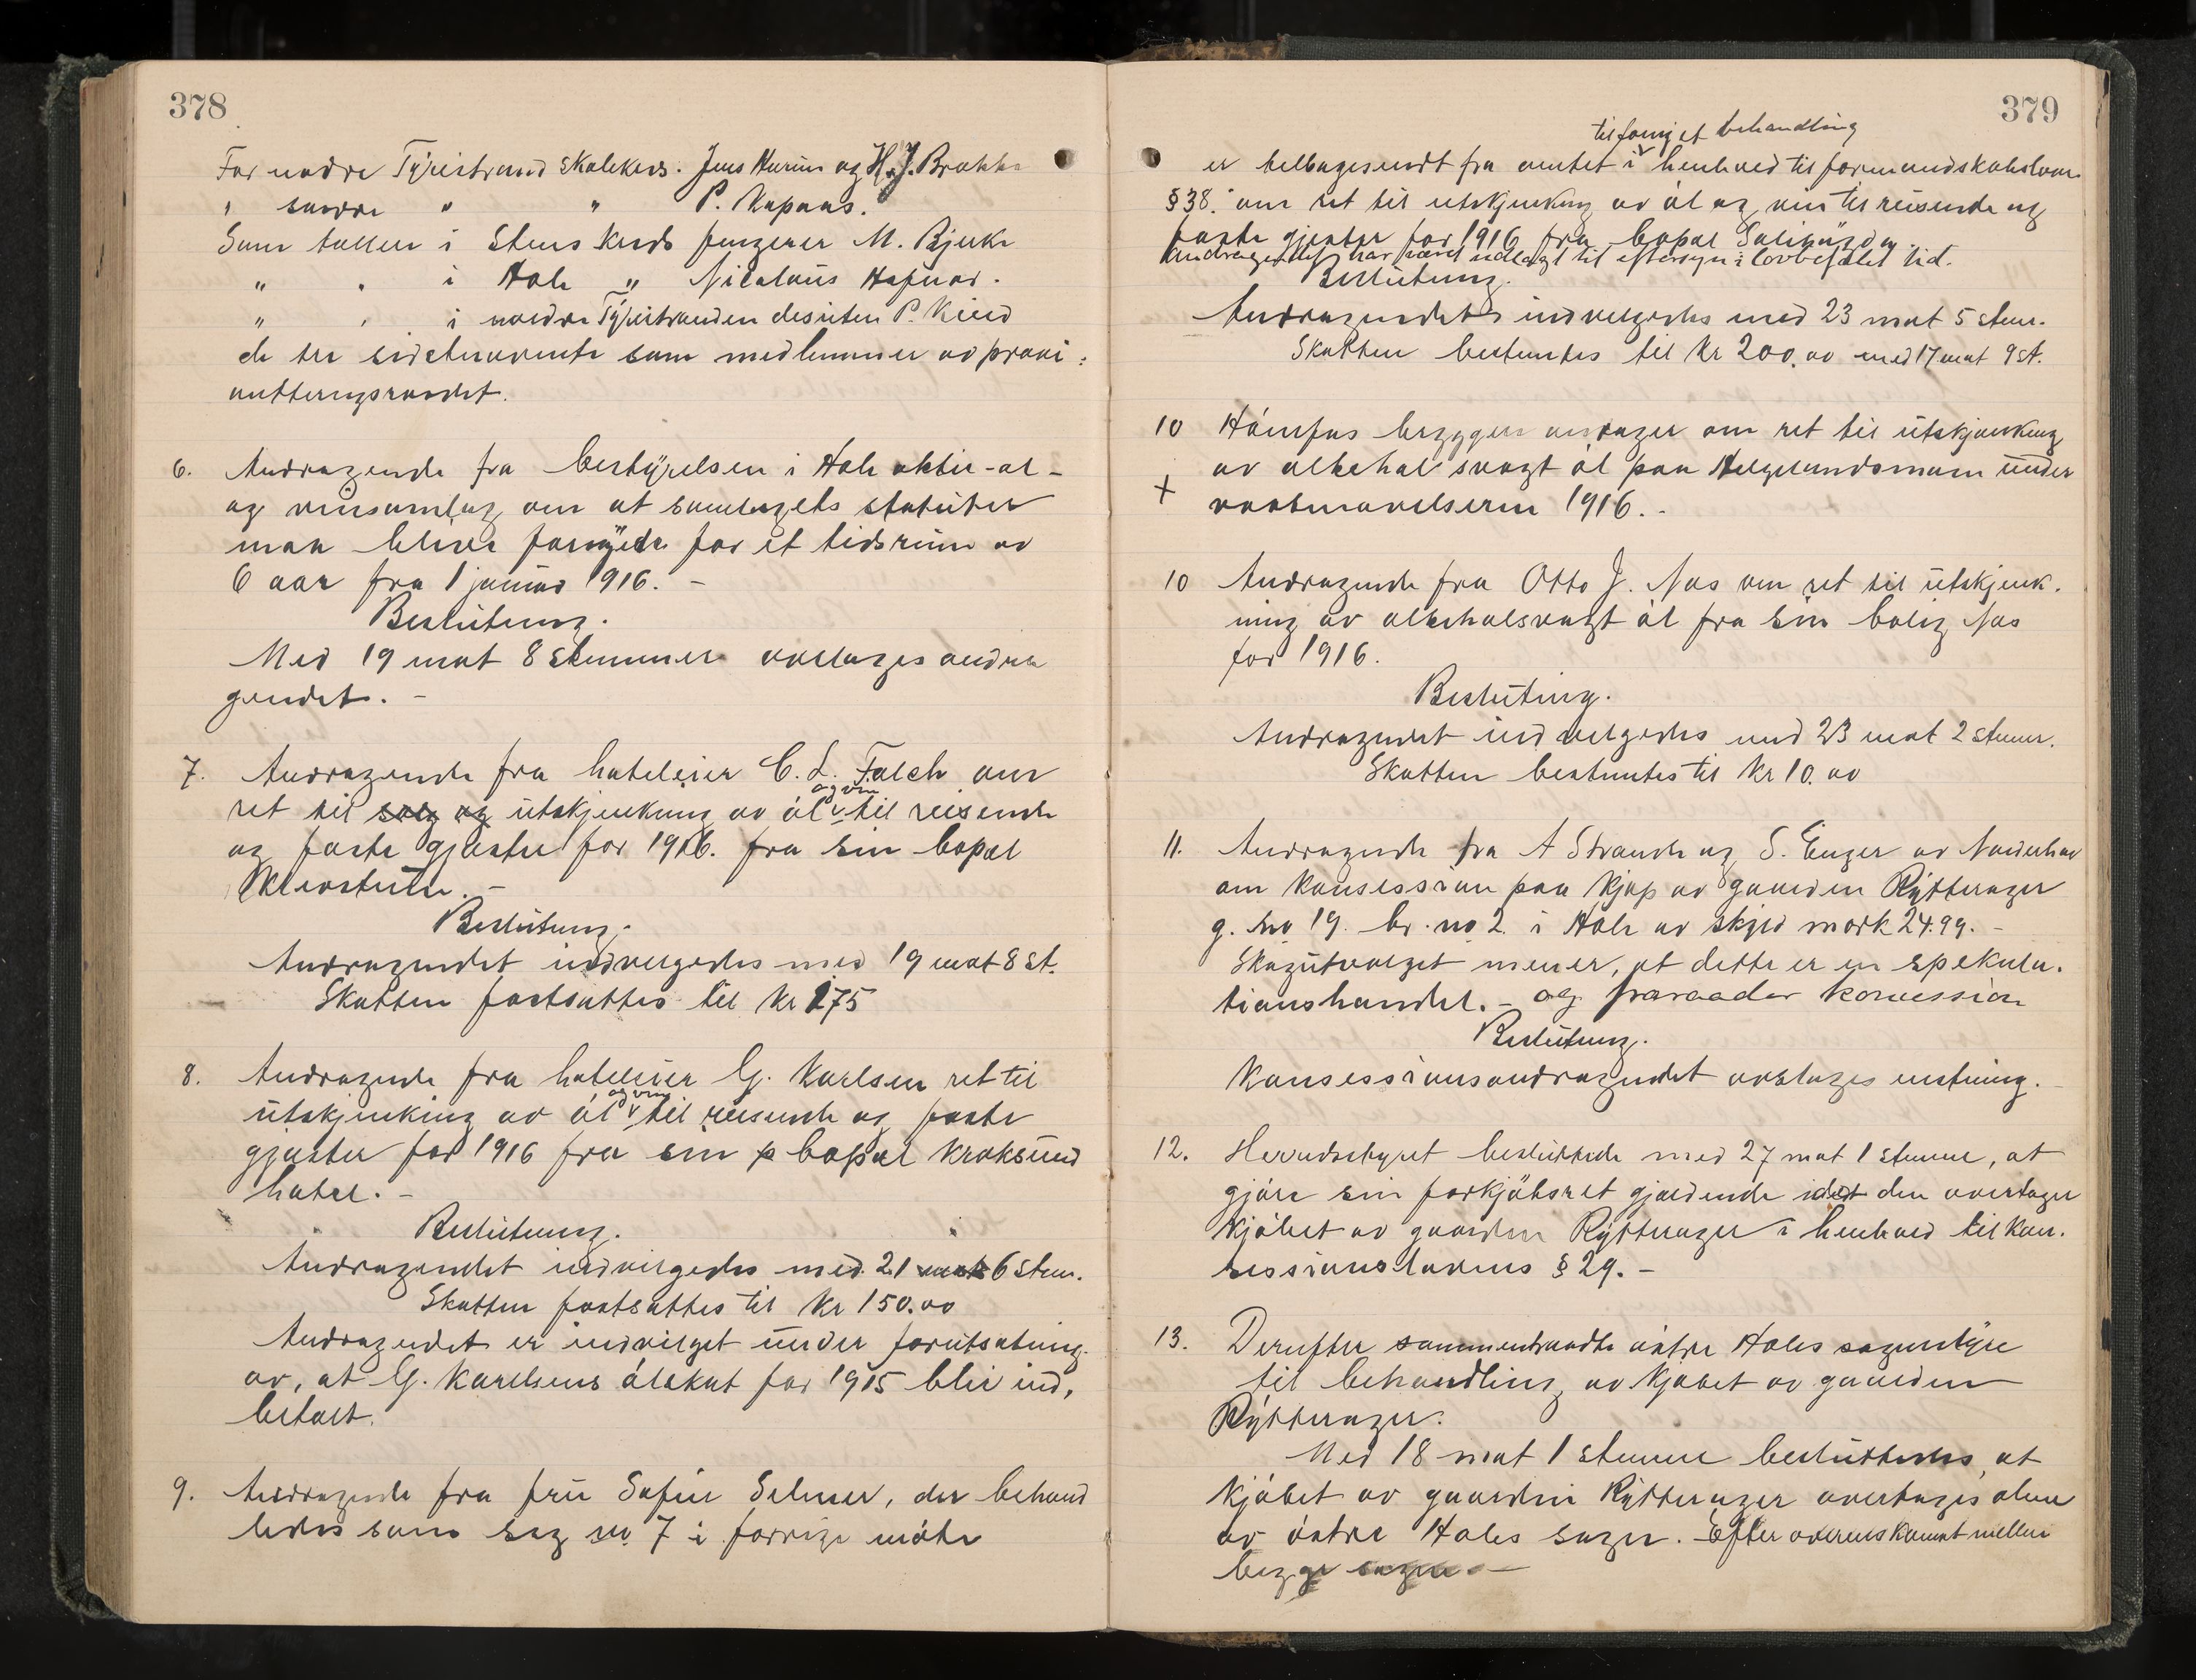 378
For nordre Tyristrand skolekres. Jens Hurum og H. J. Brakke
" søndre " " P. Kapaas.
Som tællere i Stens kreds fungerer M. Bjerke
" " i Hole " Nicolaus Hafnor.
" " i nordre Tyristranden desuten P. Kind
de tre sidstnævnte som medlemmer av provi:
anteringsraadet.
6. Andragende fra bestyrelsen i Hole aktie-øl-
og vinsamlag om at samlagets statuter
maa bliver fornyede for et tidsrum av
6 aar fra 1 januar 1916. -
Beslutning.
Med 19 mot 8 stemmer avslaaes andra
gendet. -
7. Andragende fra hoteleier C. L. Falch om
ret til salg og utskjenkning av øl og vin til reisende
og faste gjester for 1916. fra sin bopæl
Klevstuen. -
Beslutning.
Andragendet indvilgedes med 19 mot 8 st.
Skatten fastsattes til kr 175
8. Andragende fra hoteleier G. Karlsen ret til
utskjenking av øl og vin til reisende og faste
gjester for 1916 fra sin bopæl Kroksund
hotel. -
Beslutning.
Andragendet indvilgedes med 21 mot 6 stem.
Skatten fastsattes til kr 150.00
Andragendet er indvilget under forutsætning
av, at G. Karelsens ølskat for 1915 blir ind,
betalt.
9. Andragende fra fru Sofie Selmer, der behand
ledes som sag no. 7 i forrige møte
379
til fornyet behandling
er tilbagesendt fra amtet i henhold til formandskabsloven
§ 38. om ret til utskjenkning av øl og vin til reisende og
faste gjester for 1916 fra bopæl
Andragendet har været utlagt til eftersyn i lovbefalet tid.
Beslutning.
Andragendet indvilgedes med 23 mot 5 stem.
Skatten bestemtes til kr 200.00 med 17 mot 9 st.
10 Hønefos bryggeri andrager om ret til utskjenking
av alkohol svagt øl paa Helgelandsmoen under
+ vaabenøvelserne 1916. -
10 Andragende fra Otto J. Næs om ret til utskjenk.
ning av alkoholsvagt øl fra sin bolig Næs
for 1916.
Beslutning.
Andragendet indvilgedes med 23 mot 2 stem.
Skatten bestemtes til kr 10.00
11. Andragende fra A Strande og S. Enger av Norderhov
om konsession paa kjøp av gaarden Rytterager
g. no 19. br. no 2. i Hole av skyld mark 24.99. -
Skogutvalget mener, at dette er en spekula.
tionshandel. - og fraraader koncession
Beslutning.
Konsessionsandragendet avslaaes enstemmig. -
12. Herredsstyret besluttede med 27 mot 1 stemme, at
gjøre sin forkjøbsret gjeldende idet den overtager
kjøbet av gaarden Rytterager i henhold til kon.
sessionslovens § 29. -
13. Derefter sammentraadte østre Holes sognestyre
til behandling av kjøbet av gaarden
Rytterager.
Med 18 mot 1 stemme besluttedes, at
kjøbet av gaarden Rytterager overtages alene
av østre Holes sogn. Efter overenskomst mellem
begge sogne. -